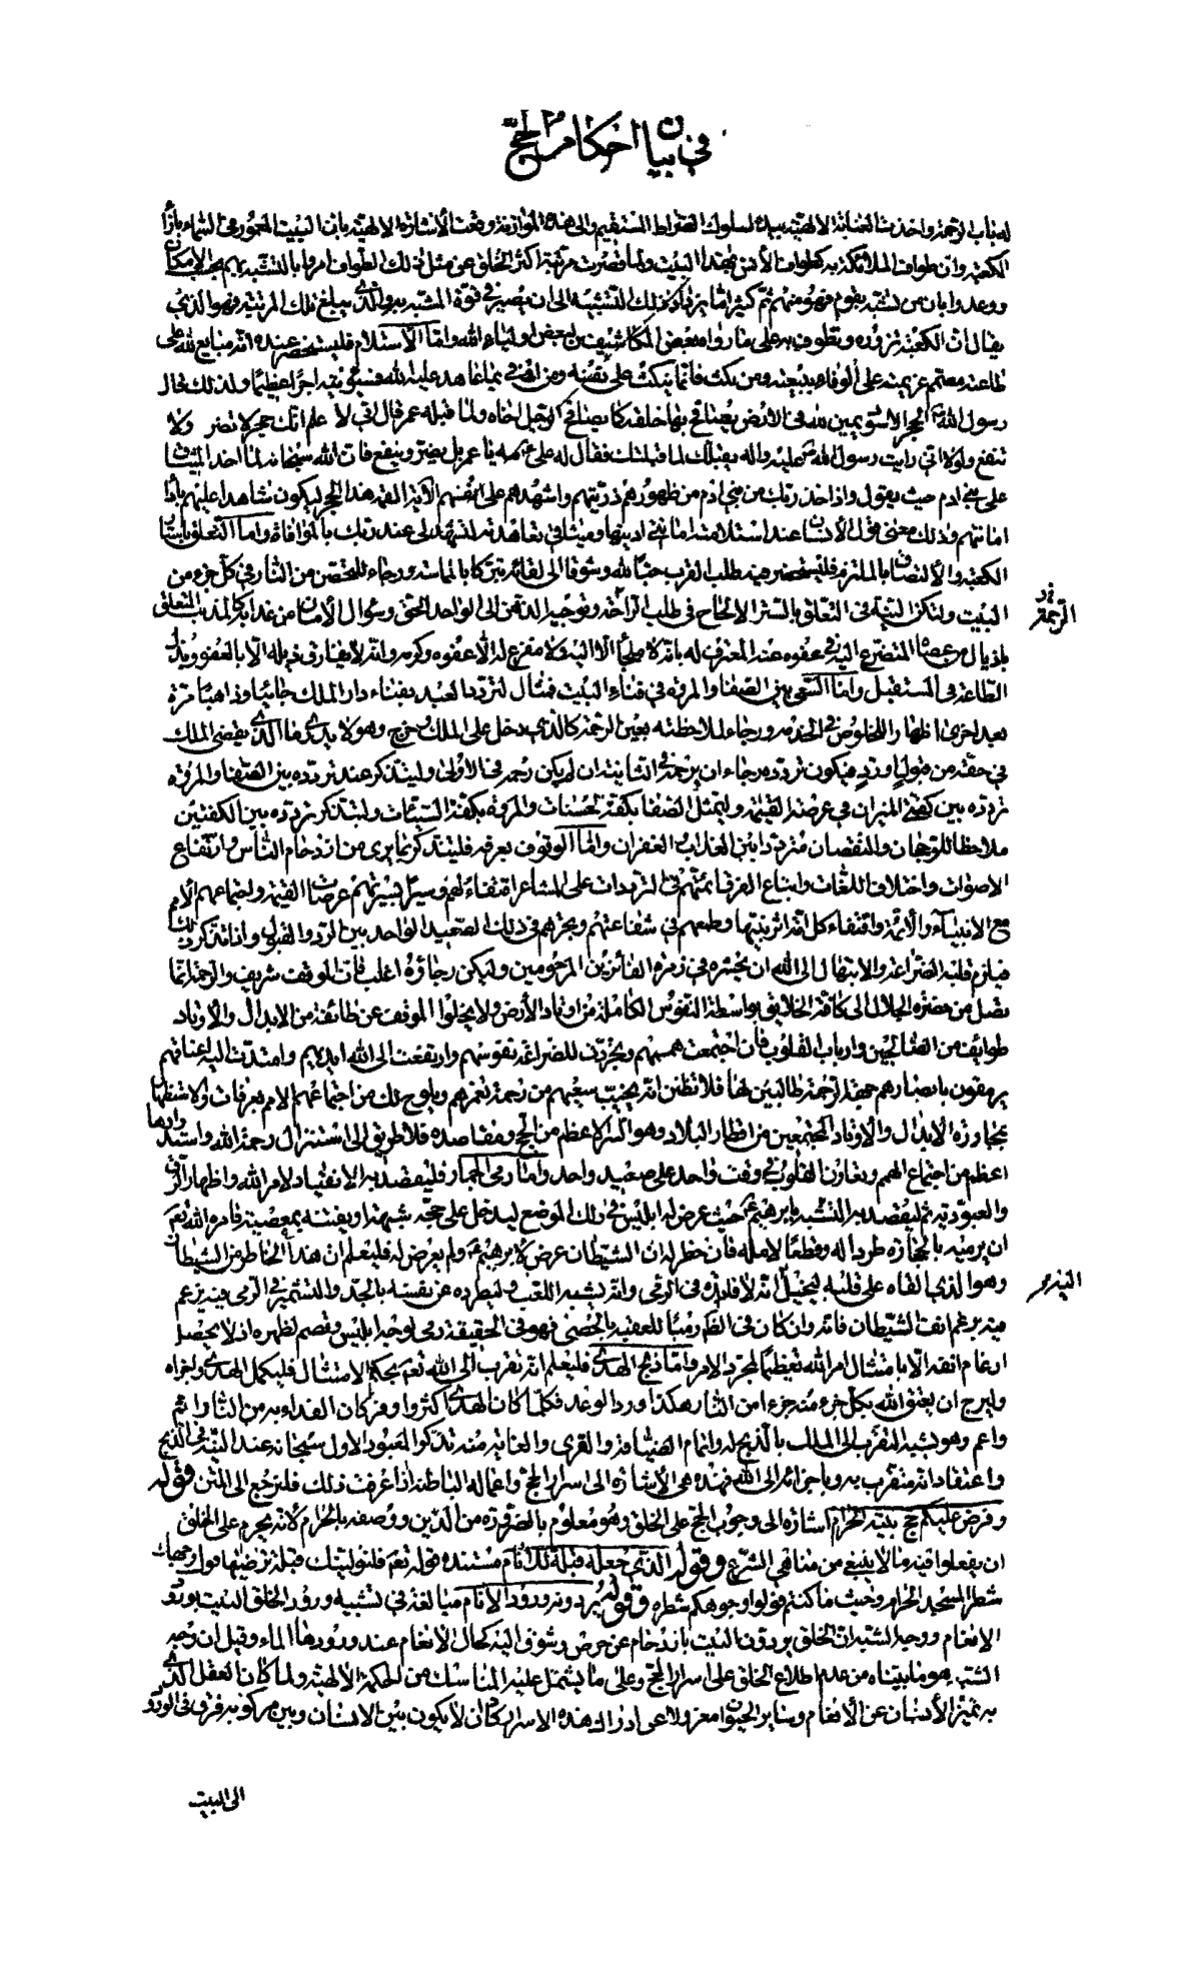 في بيان احكام الحج
له باب الرحمة واخذت العناية الالهية بيده لسلوك الصراط المستقيم والى هذه الموازنة وقعت الأشارة الالهية بان البيت المعمور في السماء بازاء
الكعبة وان طواف الملائكة به كطواف الأنس بهذا البيت ولما قصرت مرتبة اكثر الخلق عن مثل ذلك الطواف امروا بالتشبه بهم بحسب الامكان
ووعدوا بان من تشبه بقوم فهو منهم ثم كثيرا ما يزداد ذلك التشبه الى ان يصير في قوة المشبه به والذى يبلغ تلك المرتبة فهو الذى
يقال ان الكعبة تزوره وتطوف به على ما رواه بعض المكاشفين لبعض اولياء الله واما الأستلام فليستحضر عنده انه مبايع لله على
طاعته مصمم عزيمته على الوفاء ببيعته ومن نكث فانما ينكث على نفسه ومن اوفى بما عاهد عليه الله فسيؤتيه اجرا عظيما ولذلك قال
رسول الله الحجر الاسود يمين الله فى الارض يصافح بها خلقه كما يصافح الرجل اخاه ولما قبله عمر قال انى لا علم انك حجر لا تضر ولا
تنفع ولولا انى رايت رسول الله عليه واله يقبلك لما قبلتك فقال له على مه يا عمر بل يضر وينفع فان الله سبحانه لما اخذ الميثاق
على بنى ادم حيث يقول واذ اخذ ربك من بنى ادم من ظهورهم ذريتهم واشهدهم على انفسهم الآية القمه هذا الحجر ليكون شاهدا عليهم باداء
امانتهم وذلك معنى قول الأنسان عند استلامه امانتى اديتها وميثاقى تعاهدته لتشهد لى عند ربك بالموافاة واما التعلق باستار
الكعبة والألتصاق بالملتزم فليستحضر فيه طلب القرب حبا لله وشوقا الى لقائه تبركا بالمماسة ورجاء للتحصن من النار فى كل جزء من
البيت ولتكن النية فى التعلق بالستر الالحاح فى طلب الرحمة وتوجيه الذهن الى الواحد الحق وسؤال الأمان من عذابه كالمذنب المتعلق
باذيال من عصاه المتضرع اليه فى عفوه عنه المعترف له بانه لا ملجأ الا اليه ولا مفزع له الا عفوه وكرمه وانه لا يفارق ذيله الا بالعفو وبذل
الطاعة فى المستقبل واما السعى بين الصفا والمروة فى فناء البيت فمثال لتردد العبد بفناء دار الملك جائيا وذاهبا مرة
بعد اخرى اظهارا للخلوص فى الخدمة ورجاء لملاحظته بعين الرحمة كالذى دخل على الملك وخرج وهو لا يدرى ما الذى يقضى الملك
فى حقه من قبول او رد فيكون تردده رجاء ان يرحمه فى الثانية ان لم يكن رحمه فى الاولى وليتذكر عند تردده بين الصفا والمروة
تردده بين كفتى الميزان فى عرصة القيمة وليمثل الصفا بكفة الحسنات والمروة بكفة السيئات وليتذكر تردده بين الكفتين
ملاحظا للرجحان والنقصان مترددا بين العذاب والغفران واما الوقوف بعرفة فليتذكر بما يرى من ازدحام الناس وارتفاع
الاصوات واختلاف اللغات واتباع الفرق ائمتهم فى الترددات على المشاعر اقتفاء لهم وسيرا بسيرتهم عرصات القيمة واجتماع الامم
مع الانبياء والأئمة واقتفاء كل امة اثر نبيها وطمعهم فى شفاعتهم وتحيرهم فى ذلك الصعيد الواحد بين الرد والقبول واذا تذكر ذلك
فيلزم قلبه الضراعة والابتهال الى الله ان يحشره فى زمرة الفائزين المرحومين وليكن رجاؤه اغلب فان الموقف شريف والرحمة انما
تصل من حضرة الجلال الى كافة الخلايق بواسطة النفوس الكاملة من اوتاد الأرض ولا يخلوا الموقف عن طائفة من الابدال والأوتاد
طوايف من الصالحين وارباب القلوب فان اجتمعت هممهم وتجردت للضراعة نفوسهم وارتفعت الى الله ايديهم وامتدت اليه اعناقهم
يرمقون بابصارهم جهة الرحمة طالبين لها فلا تظنن انه يخيب سعيهم من رحمة تغمرهم ويلوح لك من اجتماعهم الامم بعرفات والاستظهار
بمجاورة الابدال والاوتاد المجتمعين من اقطار البلاد وهو السر الاعظم من الحج ومقاصده فلا طريق الى استنزال رحمة الله واستدرارها
اعظم من اجتماع الهمم وتعاون القلوب فى وقت واحد على صعيد واحد واما رمى الجمار فليقصد به الانقياد لامر الله واظهار الرق
والعبودية ثم ليقصد به التشبه بابرهيم حيث عرض له ابليس فى ذلك الموضع ليدخل على حجه شبهة او يفتنه بمعصية فامره الله تعم
ان يرميه بالحجارة طردا له وقطعا لامله فان خطر له ان الشيطان عرض لابرهيم ولم يعرض له فليعلم ان هذا الخاطر من الشيطان
وهو الذى القاه على قلبه ليخيل انه لا فائدة فى الرمى وانه يشبه اللعب وليطرده عن نفسه بالجد والتشمير فى الرمى فيه يرغم
فيه برغم انف الشيطان فانه وان كان فى الظ رميا للعقبة بالحصى فهو فى الحقيقة رمى لوجه ابليس وقصم لظهره اذ لا يحصل
ارغام انفه الا بامتثال امر الله تعظيما لمجرد الامر واما ذبح الهدى فليعلم انه تقرب الى الله تعم بحكم الامتثال فليكمل الهدى واجزاه
وليرج ان يعتق الله بكل جزء منه جزءا من النار هكذا ورد الوعد فكلما كان الهدى اكثر واوفر كان الفداء به من النار اتم
واعم وهو يشبه التقرب الى الملك بالذبح له واتمام الضيافة والقرى والغاية منه تذكر المعبود الاول سبحانه عند النية فى الذبح
واعتقاد انه متقرب به وباجزائه الى الله فهذه هى الأشارة الى اسرار الحج واعماله الباطنة اذا عرفت ذلك فلنرجع الى المتن قوله
وفرض عليكم حج بيته الحرام اشارة الى وجوب الحج على الخلق وهو معلوم بالضرورة من الدين ووصفه بالحرام لأنه يحرم على الخلق
ان يفعلوا فيه ما لا ينبغى من مناهى الشرع وقوله الذى جعله قبلة للأنام مستنده قوله تعم فلنولينك قبلة ترضيها فول وجهك
شطر المسجد الحرام وحيث ما كنتم فولوا وجوهكم شطره وقوله يردونه ورود الأنعام مبالغة فى تشبيه ورود الخلق البيت بورود
الانعام ووجه الشبه ان الخلق يردون البيت بازدحام عن حرص وشوق اليه كحال الانعام عند ورودها الماء وقيل ان وجه
الشبه هو ما بيناه من عدم اطلاع الخلق على اسرار الحج وعلى ما يشتمل عليه المناسك من الحكمة الالهية ولما كان العقل الذى
به تميز الأنسان عن الأنعام وساير الحيوان معزولا عن ادراك هذه الاسرار كاد ان لا يكون بين الانسان وبين مركوبه فرق فى الورود
الى البيت